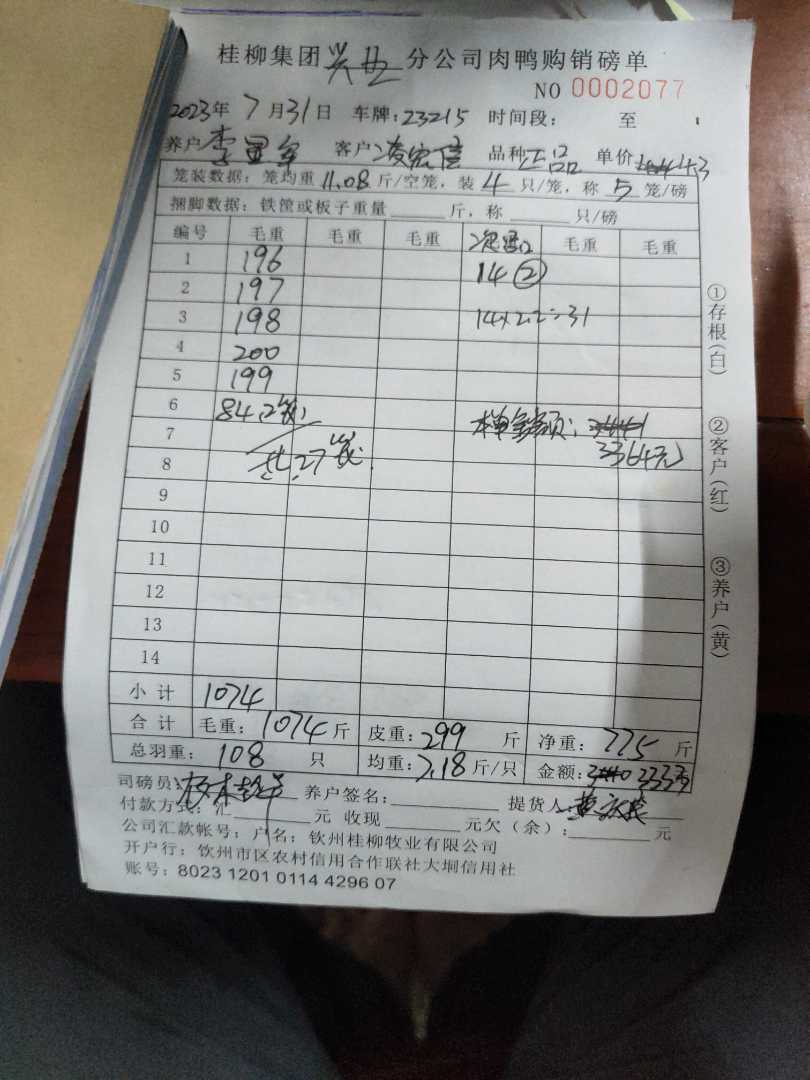 桂柳集团兴业分公司肉鸭购销磅单
NO 0002077
2023年 7月31日 车牌:23215 时间段: 至
养户 李 客户 凌宏信 品种 正品 单价 4.3
笼装数据:笼均重 11.08 斤/空笼,装 4 只/笼,称 5 笼/磅
捆脚数据:铁筐或板子重量 斤,称 只/磅
编号 毛重 毛重 毛重 毛重 毛重
1 196 14②
2 197
3 198 14×2.2=31
4 200
5 199
6 84(2笼) 本单金额:
7 共27笼 3364元
8
9
10
11
12
13
14
小计 1074
合计 毛重:1074斤 皮重:299 斤 净重:775斤
总羽重:108 只 均重:7.18斤/只 金额: 3333
司磅员: 养户签名: 提货人:
付款方式:汇 元 收现 元欠(余): 元
公司汇款帐号:户名:钦州桂柳牧业有限公司
开户行:钦州市区农村信用合作联社大垌信用社
账号:8023 1201 0114 4296 07
①存根(白)
②客户(红)
③养户(黄)